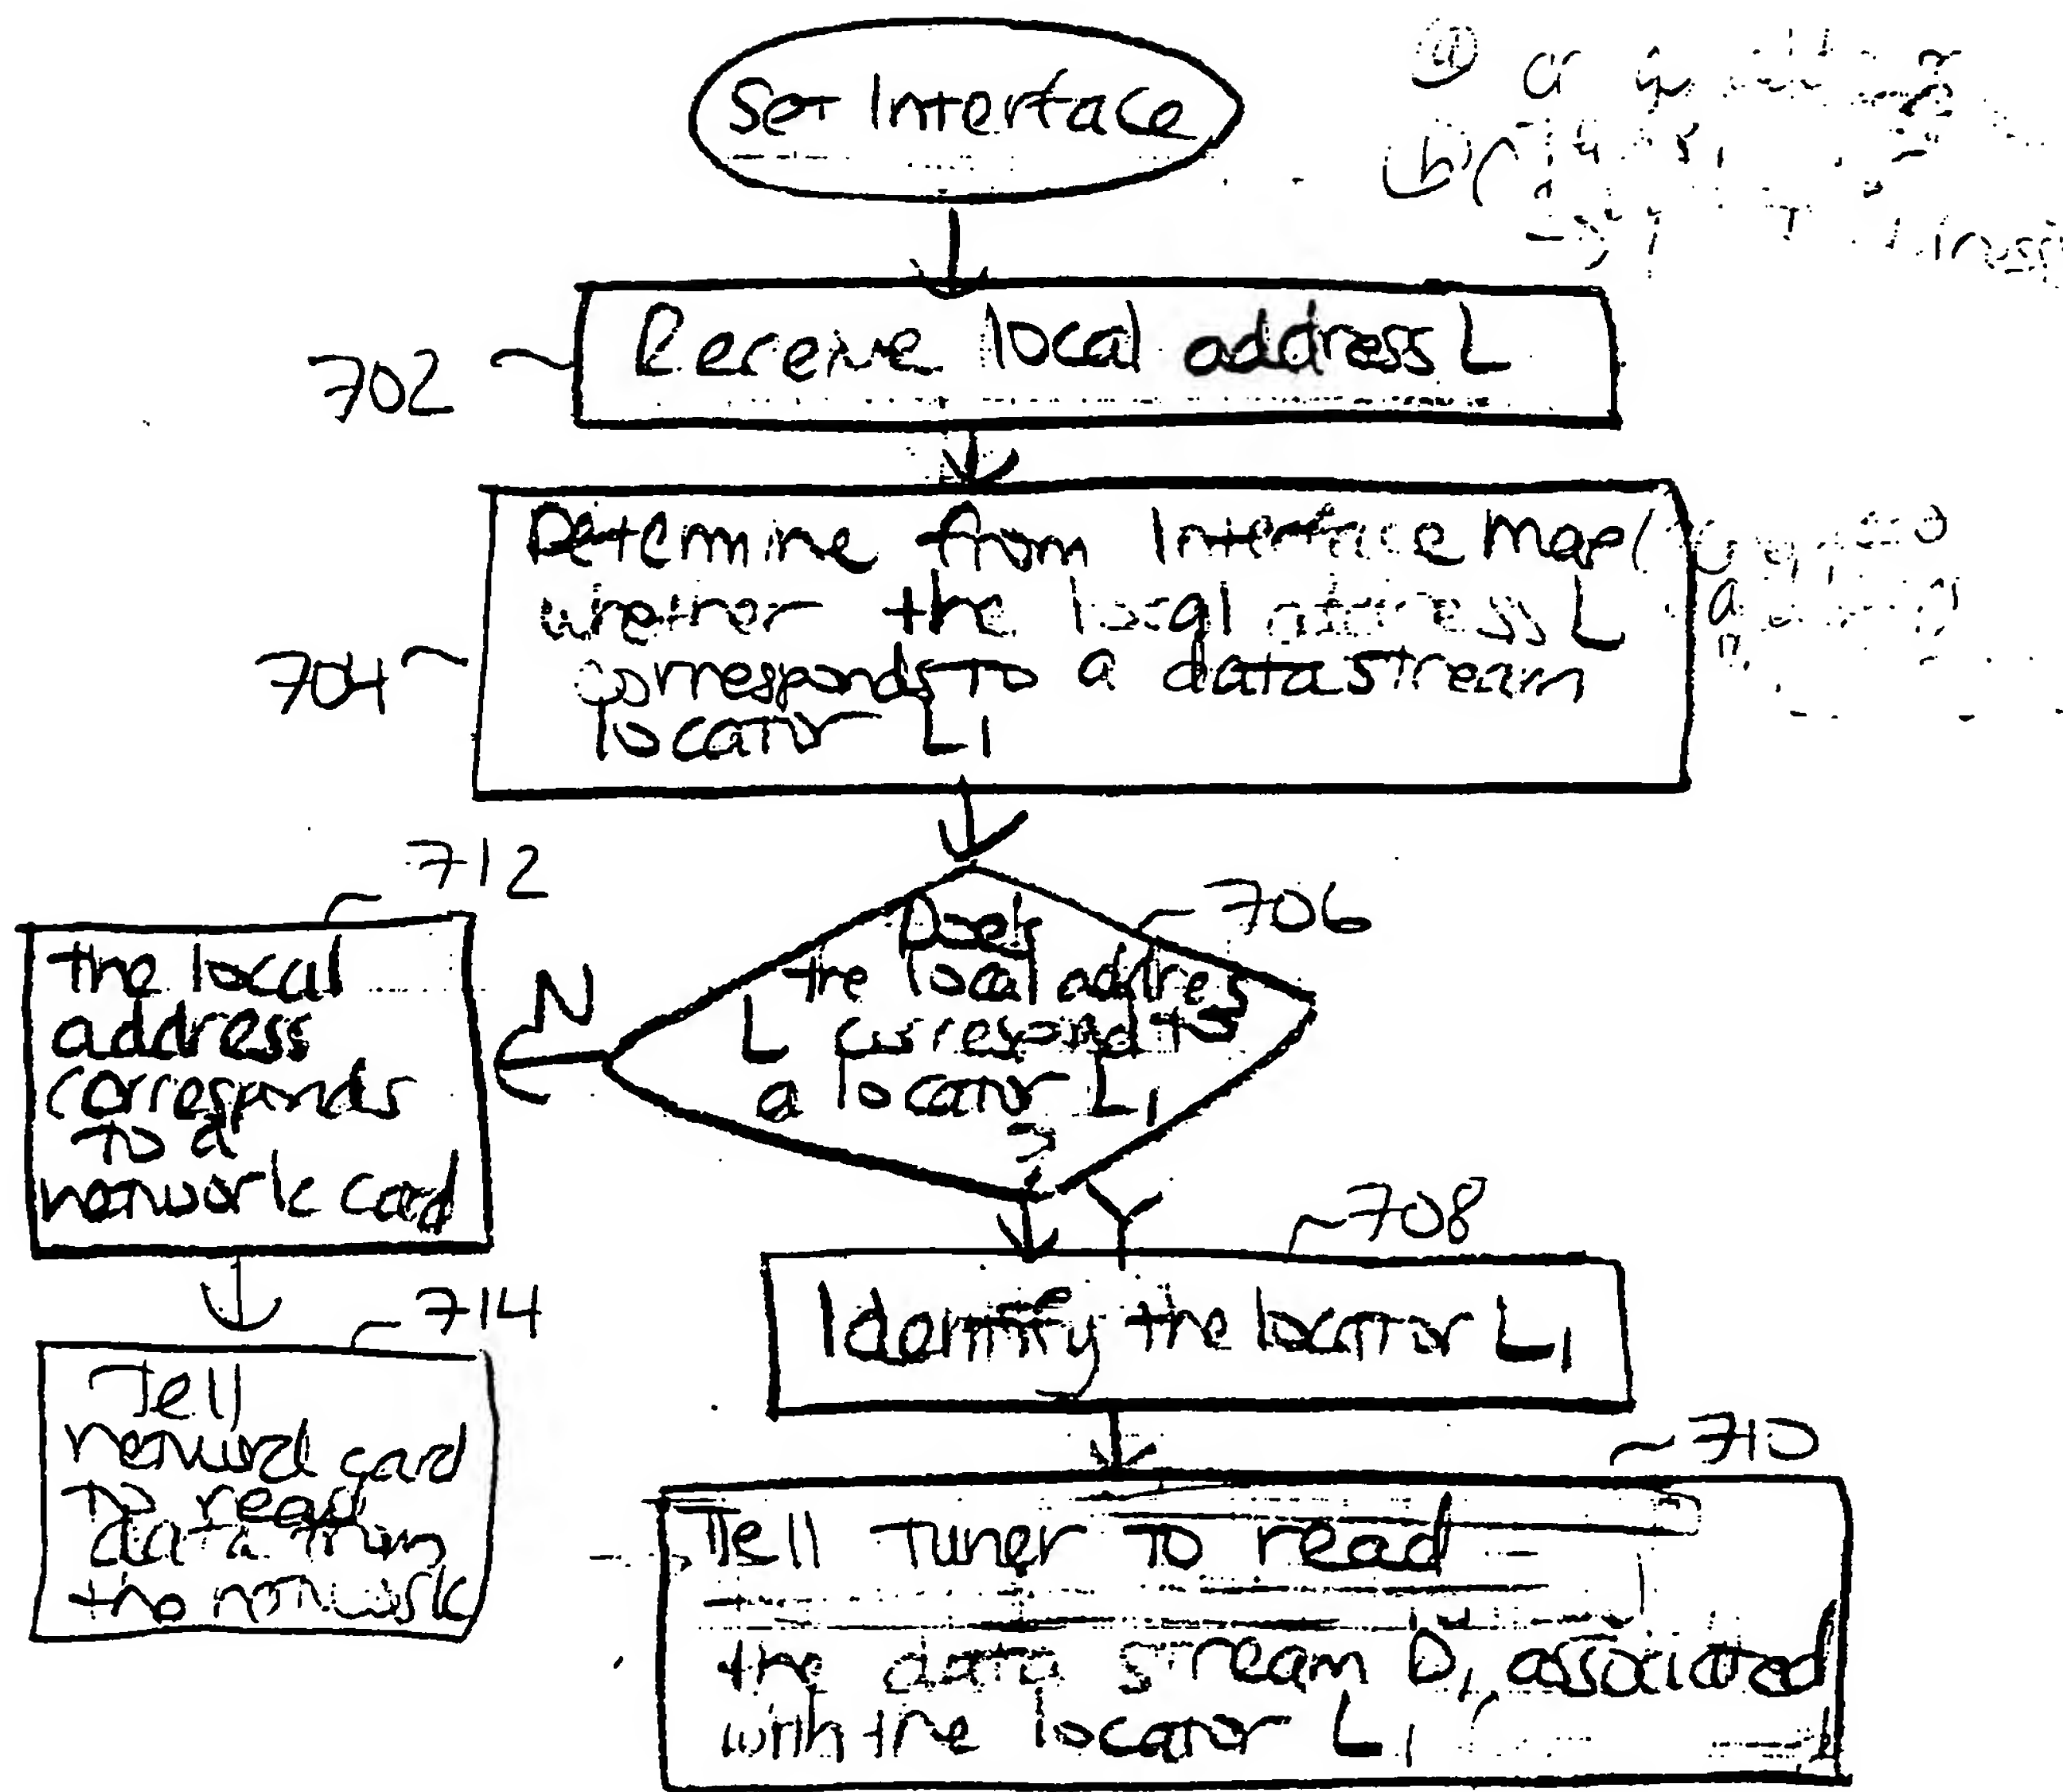 Set Interface
702
Receive local address L
704
Determine from Interface Map
whether the local address L
corresponds to a data stream
locator L1
706
Does
the local addres
L correspond to
a locator L1
?
N
Y
712
the local
address
corresponds
to a
network card
714
Tell
network card
to read
data from
the network
708
Identify the locator L1
710
Tell tuner to read
the data stream D1 associated
with the locator L1